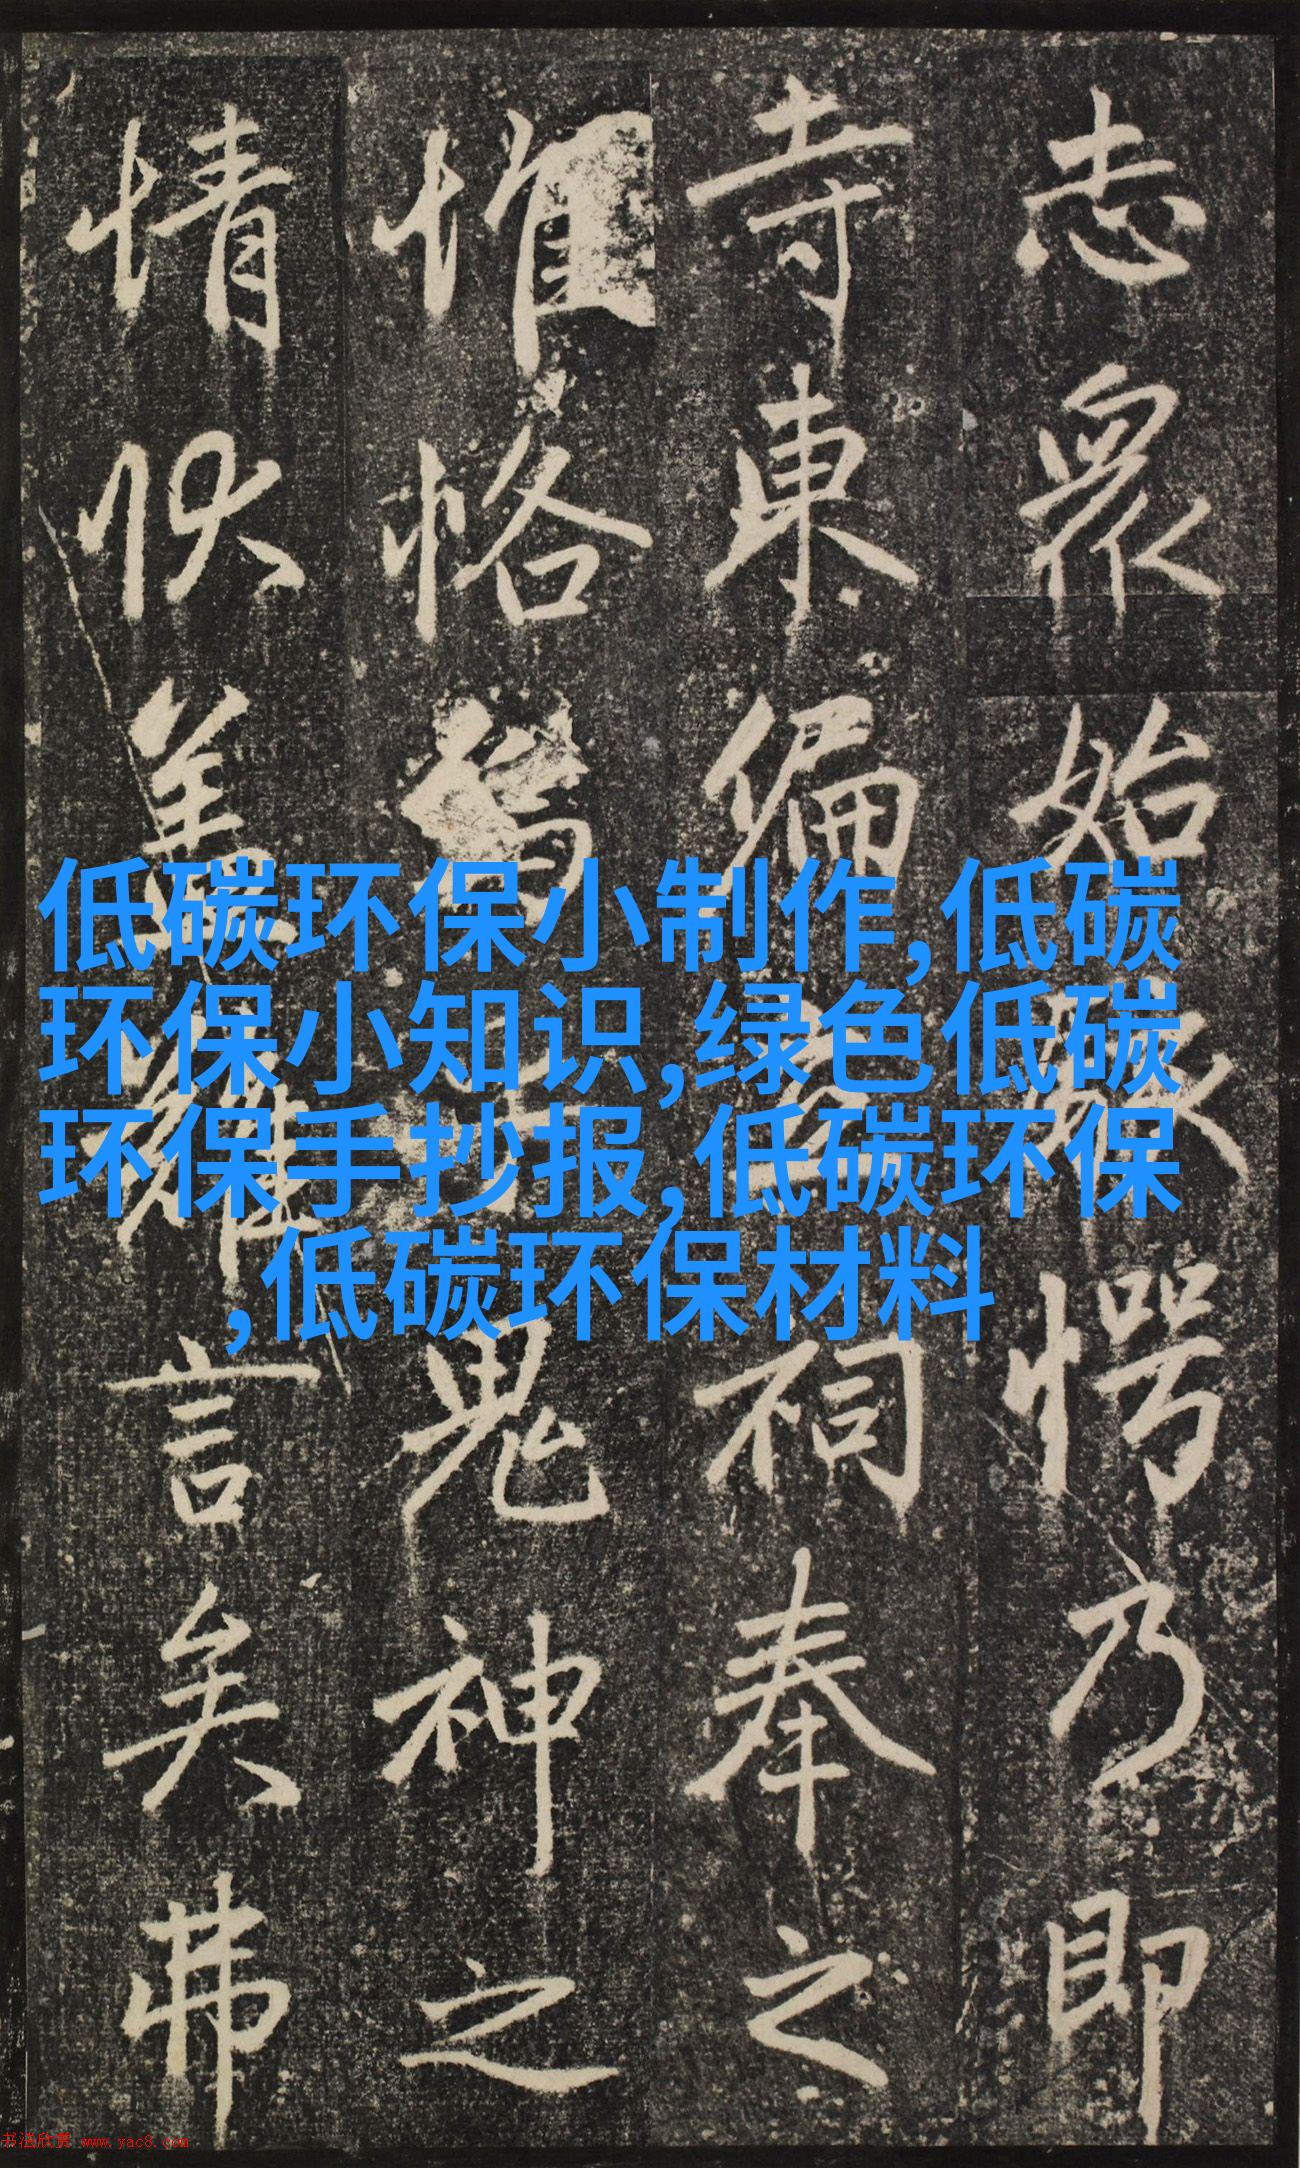 志眾始駭愕乃即
寺東偏祠奉之
惟恪鬼神之
情狀蓋難言矣弗
低碳环保小制作,低碳
环保小知识,绿色低碳
环保手抄报,低碳环保
,低碳环保材料
书法欣赏 www.yac8.com